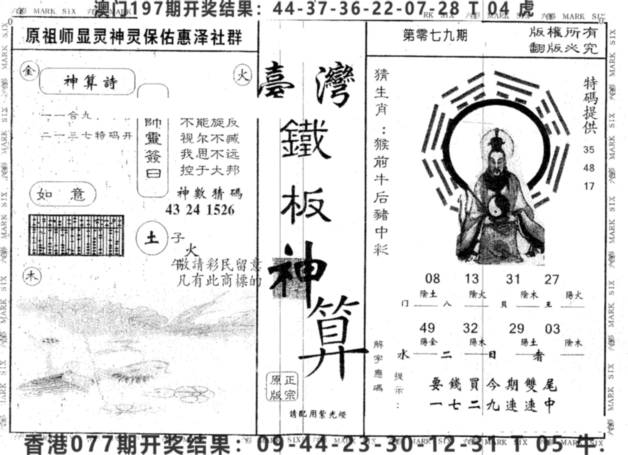 澳门197期开奖结果：44-37-36-22-07-28 T 04 虎
原祖师显灵神灵保佑惠泽社群
金
神算詩
火
一一合九
二一三七特码开
師靈簽曰
不能旋反
視尔不臧
我思不远
控于大邦
神數猜碼
43 24 1526
如意
土
子
火
午
敬請彩民留意
凡有此商標的
木
臺灣
鐵板神算
正宗
原版
請配用紫光燈
第零七九期
版權所有
翻版必究
猜生肖：猴前牛后豬中彩
特碼提供
35
48
17
08 13 31 27
陰土 陰火 陰木 陽火
門 八 貝 王
49 32 29 03
陽金 陽木 陽土 陰木
水 二 日 者
解字應碼
提示：
要錢買今期雙尾
一二七九連連中
香港077期开奖结果：09-44-23-30-12-31 T 05 牛.
MARK SIX